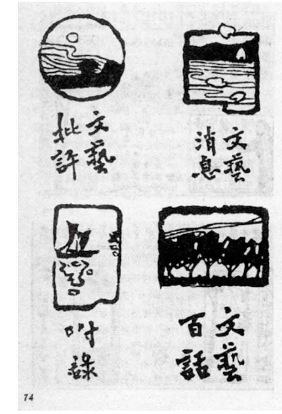 文藝
消息
文藝
批評
文藝
百話
附錄
74